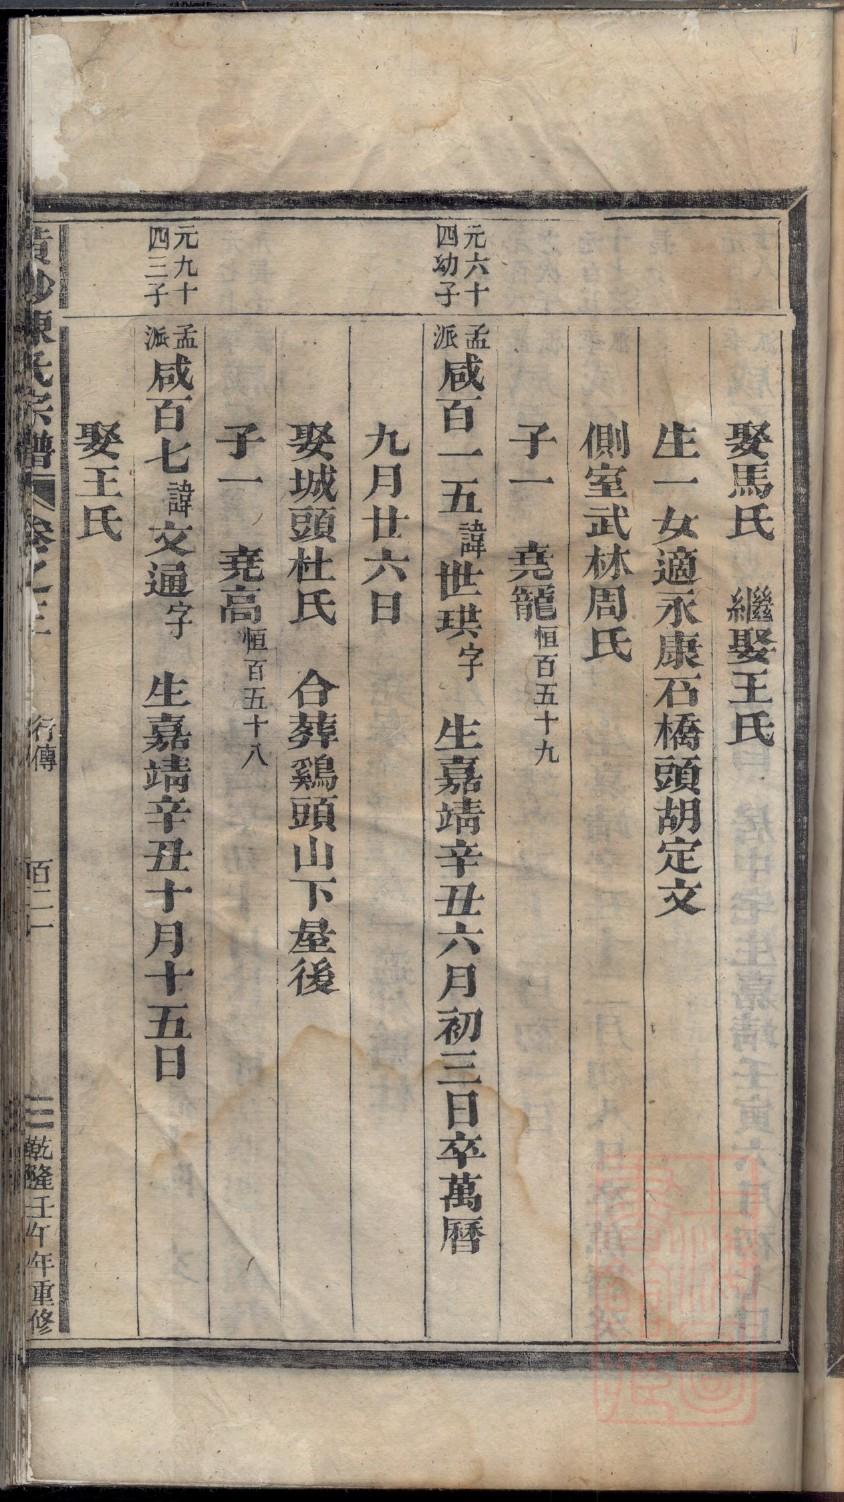 娶馬氏　繼娶王氏
生一女適永康石橋頭胡定文
側室武林周氏
子一　堯寵恒百五十九
元六十四幼子
孟派咸百一五諱世琪字　生嘉靖辛丑六月初三日卒萬曆
九月廿六日
娶城頭杜氏　合葬鷄頭山下屋後
子一　堯高恒百五十八
元九十四三子
孟派咸百七諱文通字　生嘉靖辛丑十月十五日
娶王氏
陳氏宗譜　卷之三　行傳　百二一　乾隆壬午年重修